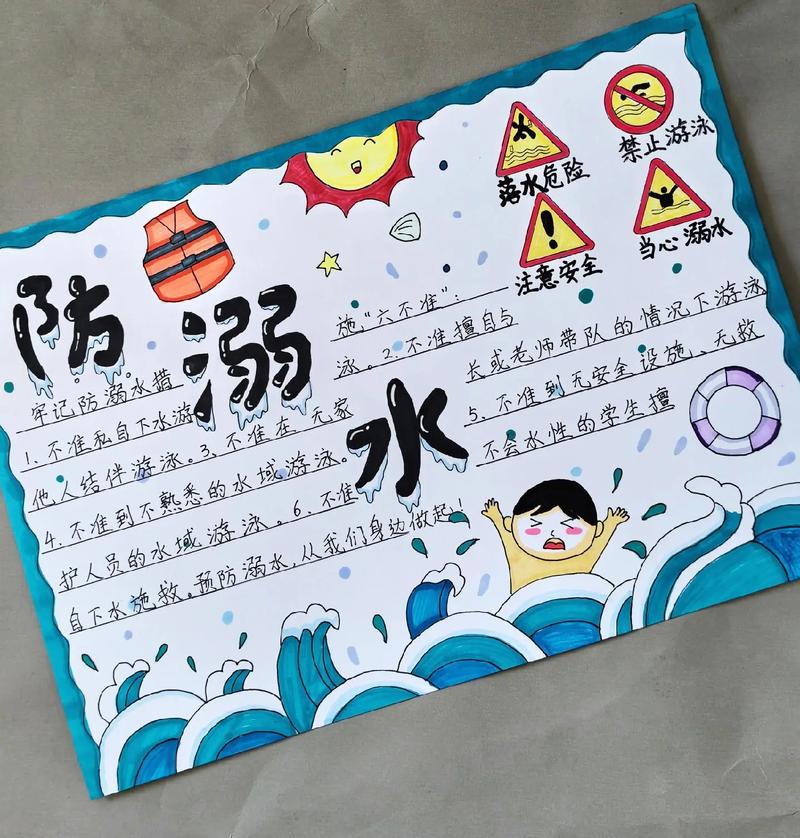 防溺水
落水危险
禁止游泳
注意安全
当心溺水
牢记防溺水措施“六不准”:
1.不准私自下水游泳。2.不准擅自与
他人结伴游泳。3.不准在无家长或老师带队的情况下游泳
4.不准到不熟悉的水域游泳。5.不准到无安全设施、无救
护人员的水域游泳。6.不准不会水性的学生擅
自下水施救。预防溺水,从我们身边做起!